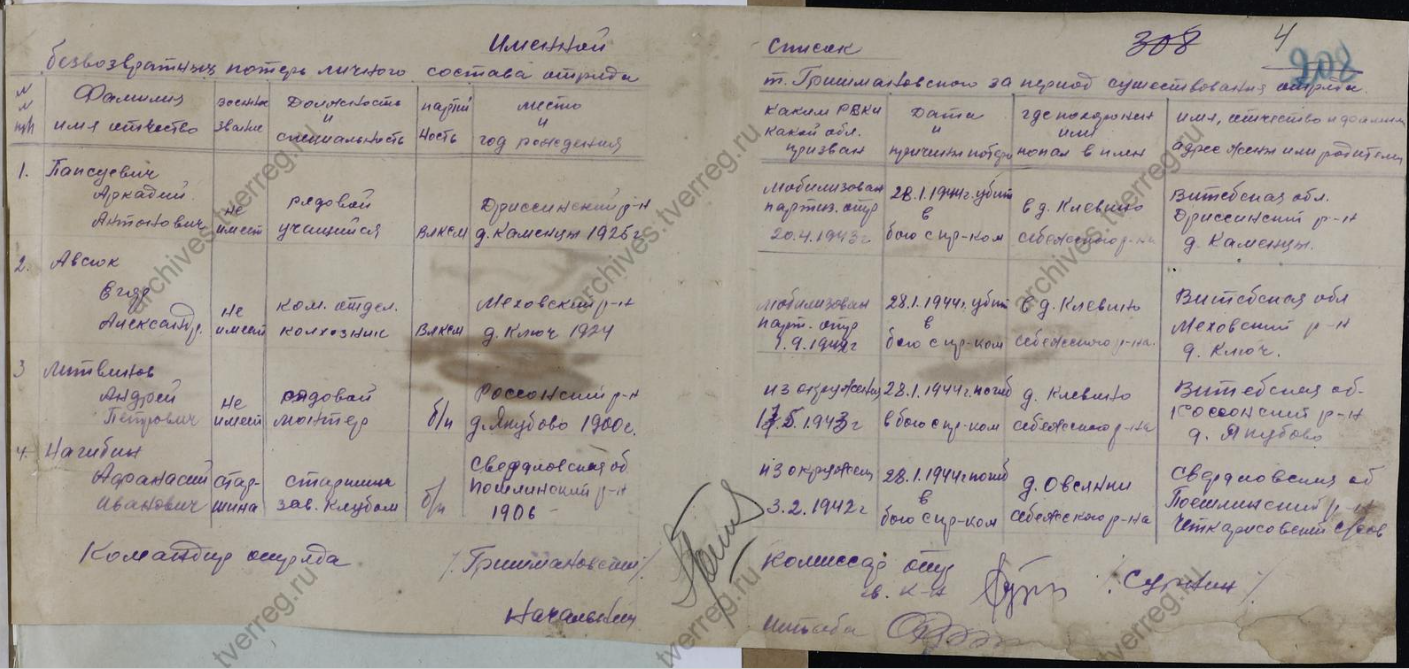 Именной список
308 4 208
безвозвратных потерь личного состава отряда т. Гришмановского за период существования отряда.
N N п/п
Фамилия имя отчество
воен. звание
Должность и специальность
партийность
место и год рождения
каким РВК и какой обл. призван
Дата и причины потери
где похоронен или попал в плен
имя, отчество и фамилия адрес жены или родителей
1. Папсуевич Аркадий Антонович
не имеет
рядовой учащийся
ВЛКСМ
Дриссинский р-н д. Каменцы 1925 г
мобилизован партиз. отр 20.4.1943 г
28.1.1944 г. убит в бою с пр-ком
в д. Клевино Себежского р-на
Витебская обл. Дриссинский р-н д. Каменцы.
2. Авсюк Александр.
не имеет
ком. отдел. колхозник
ВЛКСМ
Меховский р-н д. Ключ 1924
мобилизован парт. отр
28.1.1944 г. убит в бою с пр-ком
в д. Клевино Себежского р-на.
Витебская обл Меховский р-н д. Ключ.
3 Литвинов Андрей Петрович
не имеет
рядовой монтер
б/п
Россонский р-н д. Якубово 1900 г.
из окружения 5.1943 г
28.1.1944 г. погиб в бою с пр-ком
д. Клевино Себежского р-на
Витебская об- Россонский р-н д. Якубово
4. Нагибин Афанасий Иванович
старшина
старшина зав. клубом
б/п
Свердловская об р-н 1906
из окружен 3.2.1942 г
28.1.1944 г погиб в бою с пр-ком
д. Овсянки Себежского р-на
Свердловская об р-н
Командир отряда /Гришмановский/
Комиссар отр гв. к-н /Суркин/
Начальник штаба
archives.tverreg.ru
archives.tverreg.ru
archives.tverreg.ru
archives.tverreg.ru
tverreg.ru
tverreg.ru
tverreg.ru